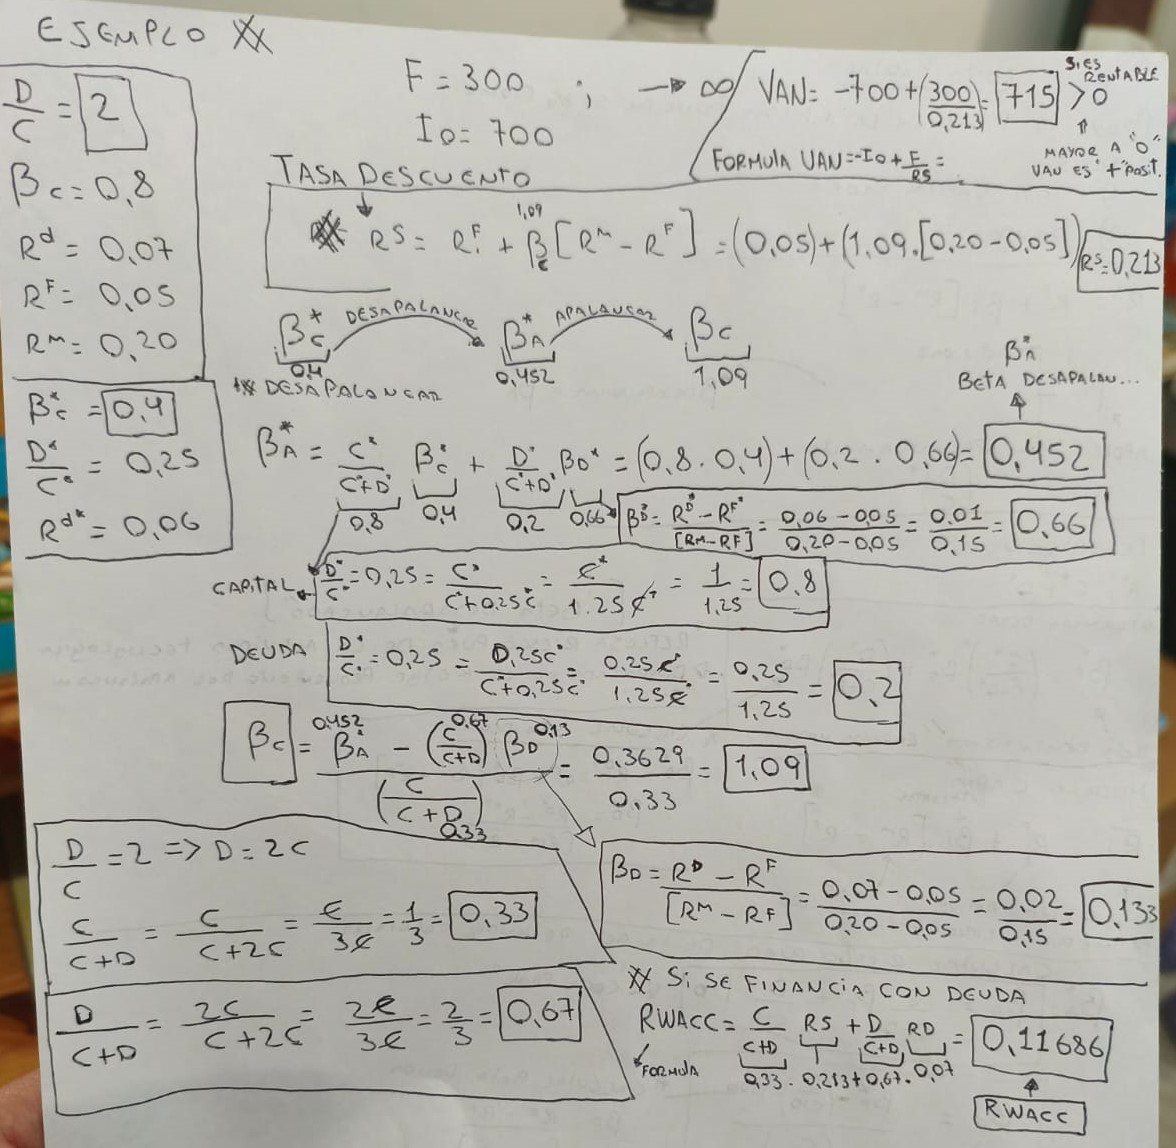 EJEMPLO XX
D/C = 2
βc = 0,8
R^d = 0,07
R^F = 0,05
R^M = 0,20
βc* = 0,4
D*/C* = 0,25
R^d* = 0,06
F = 300 ; → ∞
I0 = 700
VAN = -700 + (300/0,213) = 715 > 0
SI ES RENTABLE
↑
MAYOR A "0"
VAN ES "+" POSIT.
FORMULA VAN = -I0 + F/RS =
TASA DESCUENTO
1,09
R^S = R^F + βc [R^M - R^F] = (0,05) + (1,09.[0,20-0,05])
R^S = 0,213
βc* DESAPALANCAR βA* APALANCAR βc
0,4 0,452 1,09
** DESAPALANCAR
βA*
BETA DESAPALAN...
βA* = C*/(C*+D*) βc* + D*/(C*+D*) . βD* = (0,8 . 0,4) + (0,2 . 0,66) = 0,452
0,8 0,4 0,2 0,66
βD* = (R^D* - R^F*)/[RM-RF] = (0,06-0,05)/(0,20-0,05) = 0,01/0,15 = 0,66
CAPITAL D*/C* = 0,25 = C*/(C*+0,25C*) = C*/1.25C* = 1/1,25 = 0,8
DEUDA D*/C* = 0,25 = 0,25C*/(C*+0,25C*) = 0,25C*/1,25C* = 0,25/1,25 = 0,2
0,452 0,67 0,13
βc = (βA* - (C/(C+D)) βD)/(C/(C+D)) = 0,3629/0,33 = 1,09
0,33
D/C = 2 => D = 2C
C/(C+D) = C/(C+2C) = C/3C = 1/3 = 0,33
D/(C+D) = 2C/(C+2C) = 2C/3C = 2/3 = 0,67
βD = (R^D - R^F)/[R^M - R^F] = (0,07-0,05)/(0,20-0,05) = 0,02/0,15 = 0,133
XX Si SE FINANCIA CON DEUDA
RWACC = C/(C+D) RS + D/(C+D) RD = 0,11686
FORMULA 0,33 . 0,213 + 0,67 . 0,07
RWACC